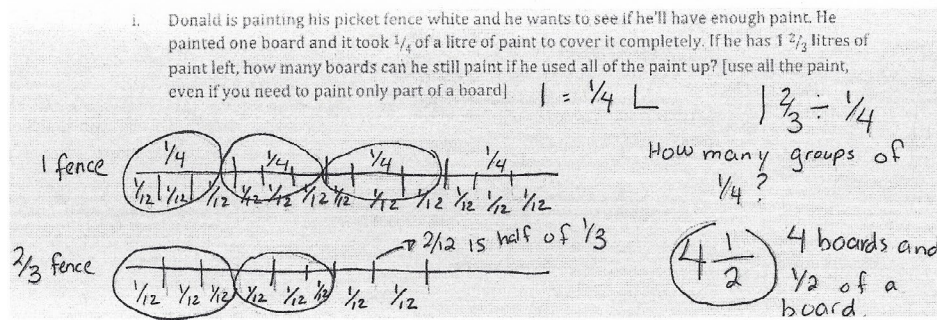 i. Donald is painting his picket fence white and he wants to see if he'll have enough paint. He
painted one board and it took 1/4 of a litre of paint to cover it completely. If he has 1 2/3 litres of
paint left, how many boards can he still paint if he used all of the paint up? [use all the paint,
even if you need to paint only part of a board]
1 = 1/4 L
1 2/3 ÷ 1/4
How many groups of
1/4?
1 fence
1/4 1/4 1/4 1/4
1/12 1/12 1/12 1/12 1/12 1/12 1/12 1/12 1/12 1/12 1/12 1/12
2/12 is half of 1/3
2/3 fence
1/12 1/12 1/12 1/12 1/12 1/12 1/12 1/12
4 1/2
4 boards and
1/2 of a
board